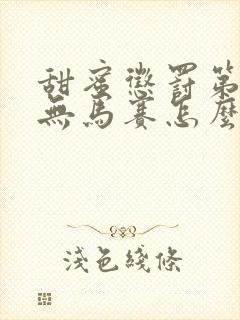 甜蜜懲罰第
無馬賽怎麼
淺色綫條